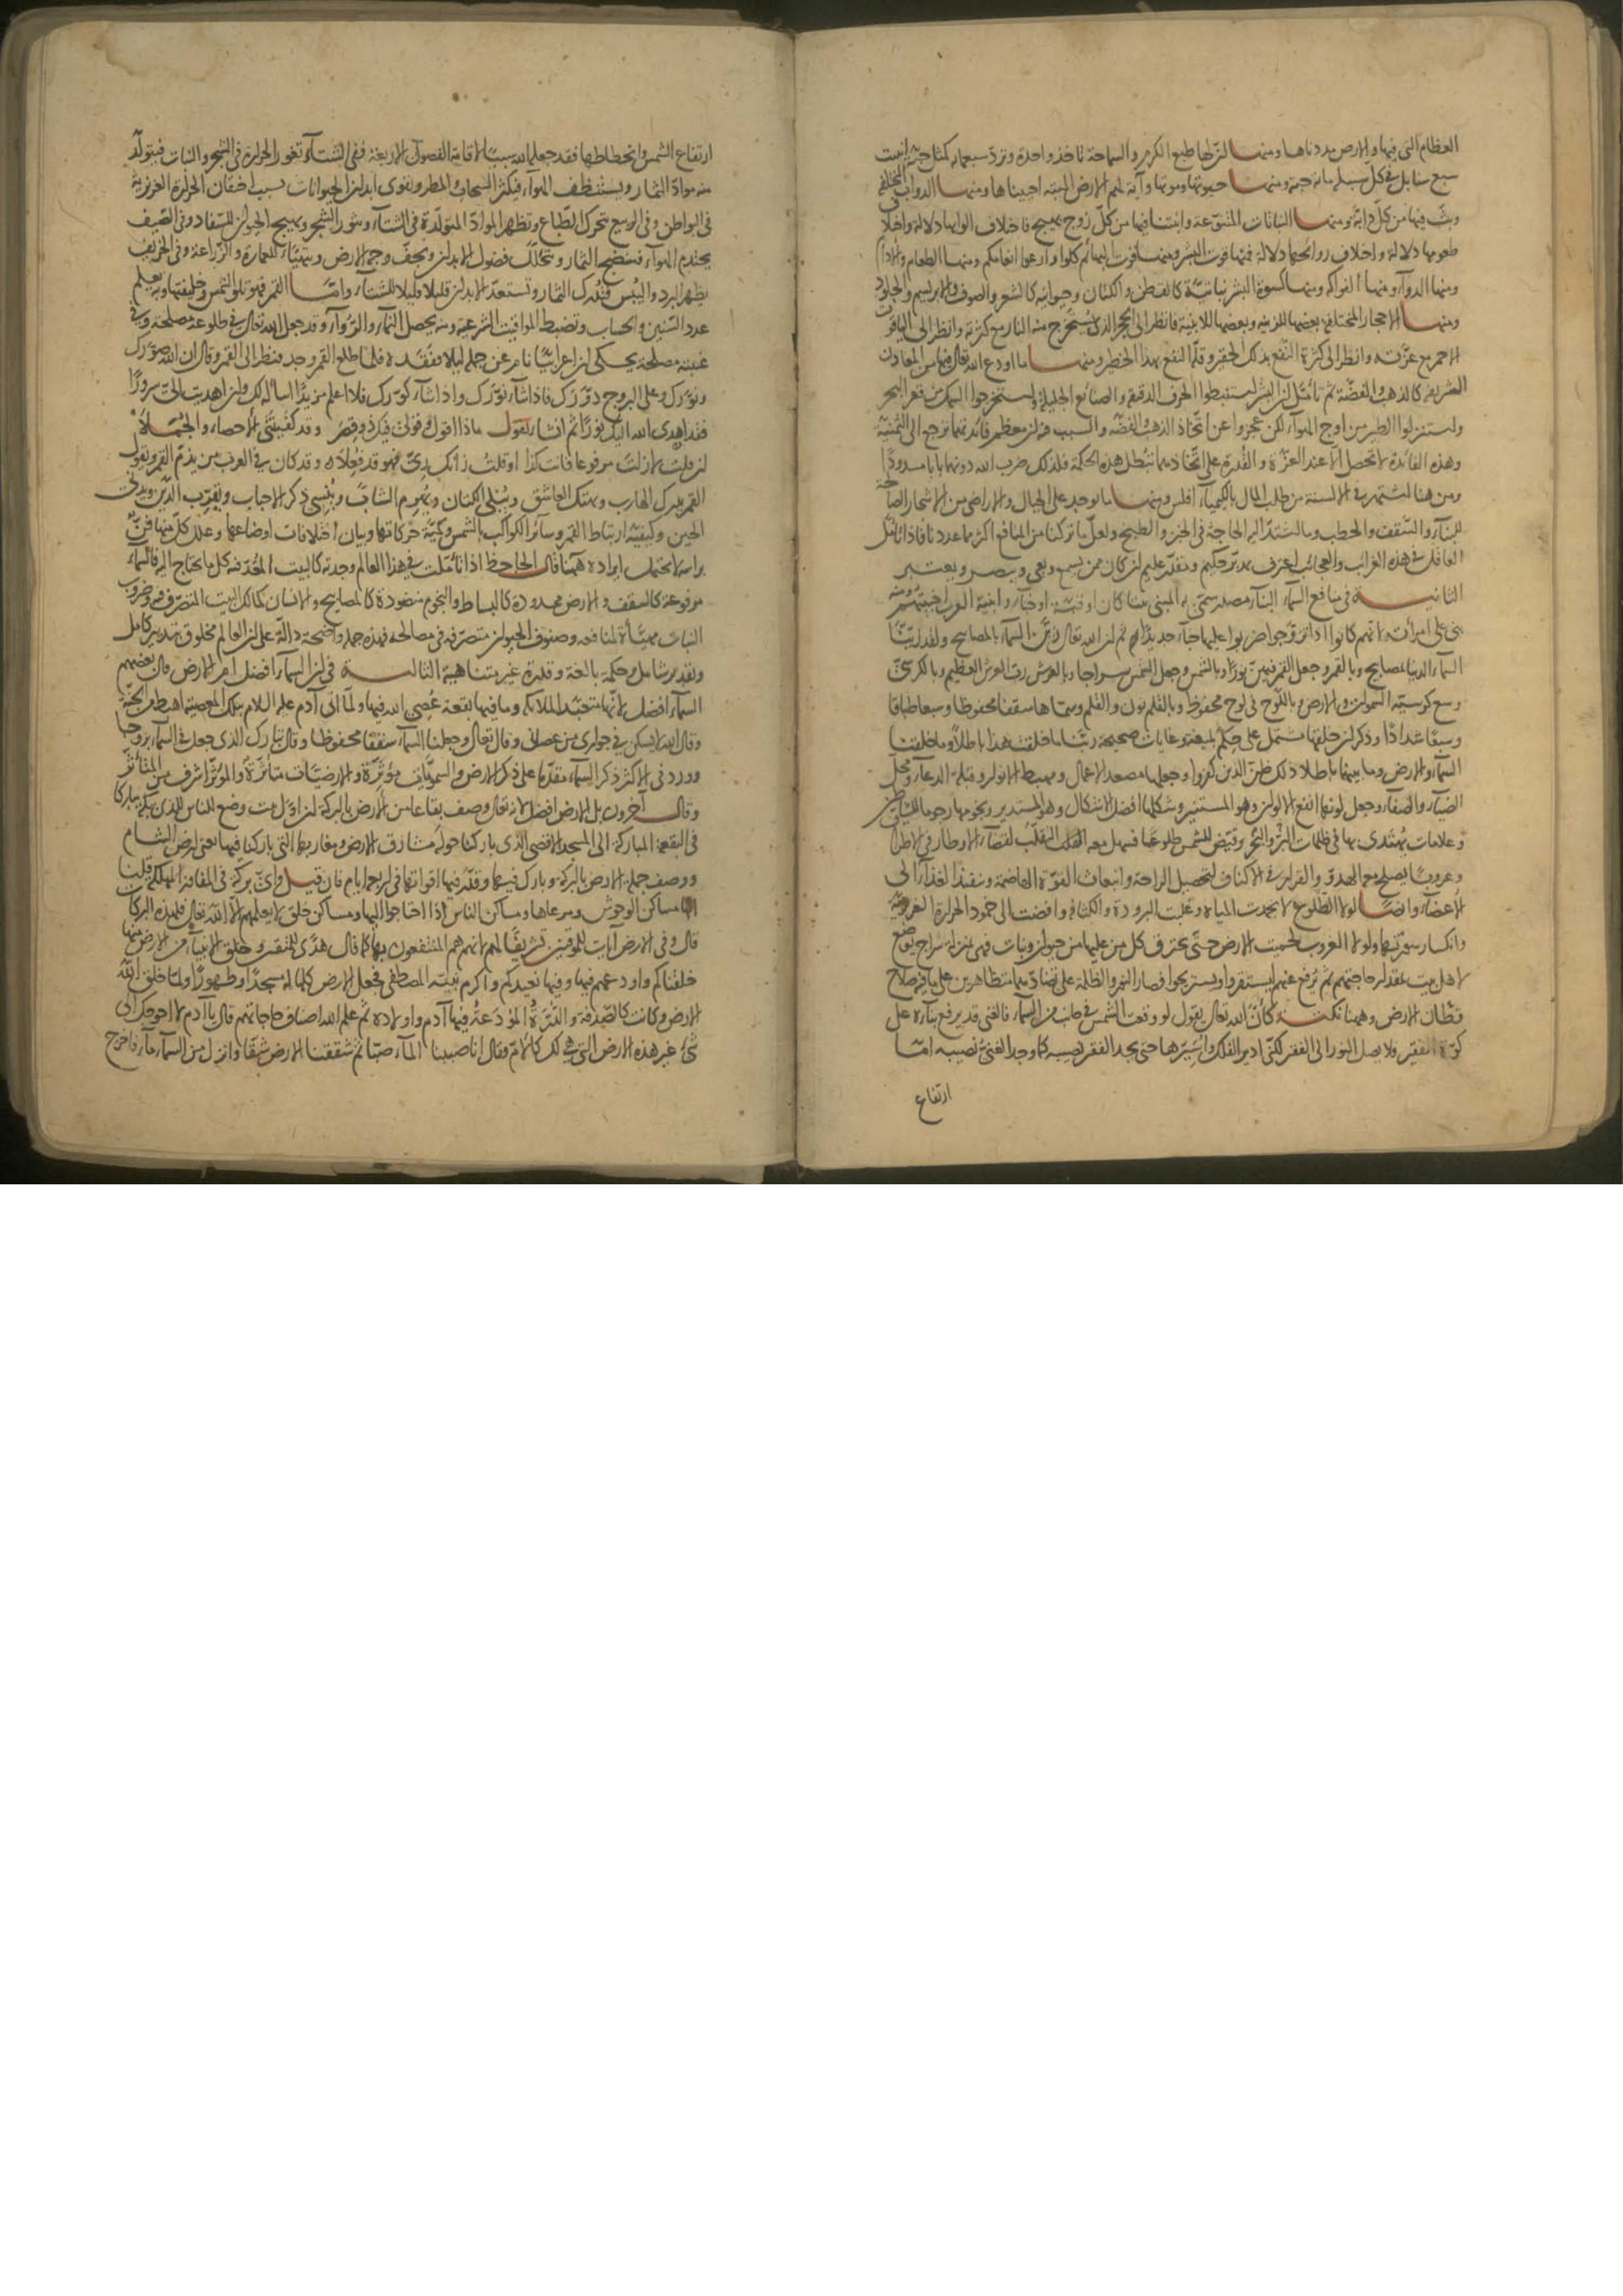 العظام التى فيها والارض مددناها ومنها ان لها طبع الكرم والسماحة تاخذ واحدة وتردّ سبعمائة كمثل حبة انبتت
سبع سنابل فى كلّ سنبلة مائة حبة ومنها حيوتها وموتها وآية لهم الارض الميتة احييناها ومنها الدوابّ المختلفة
وبثّ فيها من كلّ دابّة ومنها النباتات المتنوّعة وانبتنا فيها من كلّ زوج بهيج فاختلاف الوانها دلالة واختلاف
طعومها دلالة واختلاف روائحها دلالة فمنها قوت البشر ومنها قوت البهائم كلوا وارعوا انعامكم ومنها الطعام والادام
ومنها الدوآء ومنها الفواكه ومنها كسوة البشر نباتيّة كالقطن والكتان وحيوانية كالشعر والصوف والابريسم والجلود
ومنها الاحجار المختلفة بعضها للزينة وبعضها للابنية فانظر الى الحجر الذى يُستخرج منه النار مع كثرته وانظر الى الياقوت
الاحمر مع عزّته وانظر الى كثرة النّفع بذلك الحقير وقلّة النفع بهذا الخطير ومنها ما اودع الله تعالى فيها من المعادن
الشريفة كالذهب والفضّة ثم تأمّل ان البشر استنبطوا الحرف الدقيقة والصنائع الجليلة واستخرجوا السمك من قعر البحر
واستنزلوا الطير من اوج الهوآء لكن عجزوا عن اتّخاذ الذهب والفضّة والسبب فيه ان معظم فائدتهما ترجع الى الثمنيّة
وهذه الفائدة لا تحصل الّا عند العزّة والقُدرة على اتّخاذهما تُبطل هذه الحكمة فلذلك ضرب الله دونهما بابا مسدودًا
ومن هنا اشتهر فى الالسنة من طلب المال بالكيمياء افلس ومنها ما يوجد على الجبال والاراضى من الاشجار الصالحة
للبنآء والسّقف والحطب وما اشتدّ اليه الحاجة فى الخبز والطبيخ ولعلّ ما تركنا من المنافع اكثر مما عددنا فاذا تأمّل
العاقل فى هذه الغرائب والعجائب اعترف بمدبّر حكيم ومقدّر عليم ان كان ممن يسمع ويعى ويبصر ويعتبر
الثانية فى منافع السمآء البنآء مصدر سمّى به المبنى بيتا كان او قبّة او خباء وابنية العرب اخبيتهم ومنه
بنى على امرأته لانهم كانوا اذا تزوّجوا ضربوا عليها خبآء جديدًا ثم ان الله تعالى زيّن السمآء بالمصابيح ولقد زيّنّا
السمآء الدنيا بمصابيح وبالقمر وجعل القمر فيهنّ نورًا وبالشمس وجعل الشمس سراجا وبالعرش ربّ العرش العظيم وبالكرسىّ
وسع كرسيّه السموات والارض وباللّوح فى لوح محفوظ وبالقلم نون والقلم وسمّاها سقفا محفوظا وسبعا طباقا
وسبعًا شدادًا وذكر ان خلقها مشتمل على حِكم بليغة وغايات صحيحة ربّنا ما خلقت هذا باطلًا وما خلقنا
السمآء والارض وما بينهما باطلا ذلك ظنّ الذين كفروا وجعلها مصعد الاعمال ومهبط الانوار وقبلة الدعآء ومحلّ
الضيآء والصفآء وجعل لونها انفع الالوان وهو المستنير وشكلها افضل الاشكال وهو المستدير ونجومها رجوما للشياطين
وعلامات يُهتدى بها فى ظلمات البرّ والبحر وقيّض للشمس طلوعا فسهل معه التقلّب لقضآء الاوطار فى الاطراف
وغروبًا يصلح معه الهدوّ والقرار فى الاكناف لتحصيل الراحة وانبعاث القوّة الهاضمة وتنفيذ الغذآء الى
الاعضآء وايضًا لولا الطّلوع لانجمدت المياه وغلبت البرودة والكثافة وافضت الى جمود الحرارة الغريزيّة
وانكسار سورتها ولولا الغروب لحميت الارض حتّى يحترق كل من عليها من حيوان ونبات فهى بمنزلة سراج يوضع
لاهل بيت بقدر حاجتهم ثم يُرفع عنهم ليستقروا ويستريحوا فصار النور والظلمة على تضادّهما متظاهرين على ما فيه صلاح
قطّان الارض وههنا نكتة كأنّ الله تعالى يقول لو وقفت الشمس فى جانب من السمآء فالغنى قد يرفع بنآءه على
كوّة الفقير فلا يصل النور الى الفقير لكنّى ادير الفلك واسيّرها حتى يجد الفقير نصيبه كما وجد الغنىّ نصيبه امّا
ارتفاع
ارتفاع الشمس وانحطاطها فقد جعله الله سببًا لاقامة الفصول الاربعة ففى الشتآء تغور الحرارة فى الشجر والنبات فيتولّد
منه موادّ الثمار ويستنظف الهوآء فيكثر السحاب والمطر ويقوى ابدان الحيوانات بسبب احتقان الحرارة الغريزية
فى البواطن وفى الربيع تتحرك الطّباع وتظهر الموادّ المتولّدة فى الشتآء وينور الشجر ويهيج الحيوان للسّفاد وفى الصّيف
يحتدم الهوآء فينضج الثمار وتتحلّل فضول الابدان ويجفّ وجه الارض ويتهيّأ للعمارة والزّراعة وفى الخريف
يظهر البرد واليُبس فتُدرك الثمار وتستعدّ الابدان قليلا قليلا للشتآء وامّا القمر فهو تلو الشمس وخليفتها وبه يعلم
عدد السّنين والحساب وتضبط المواقيت الشرعية ومنه يحصل النمآء والرّوآء وقد جعل الله تعالى فى طلوعه مصلحة وفى
غيبته مصلحة يحكى ان اعرابيًّا نام عن جمله ليلا ففقده فلما طلع القمر وجده فنظر الى القمر وقال ان الله صوّرك
ونوّرك وعلى البروج دوّرك فاذا شآء نوّرك واذا شآء كوّرك فلا اعلم مزيدًا اسأله لك ولئن اهديت الىّ سرورًا
فقد اهدى الله اليك نورًا ثم انشا يقول ماذا اقول وقولى فيك ذو قِصَرٍ وقد كفيتنى الاحصاء والجُمَلا
ان قلتُ لا زلتَ مرفوعا فانت كذا او قلتُ زانك ربّى فهو قد فعلا وقد كان فى العرب من يذمّ القمر ويقول
القمر يدرك الهارب ويهتك العاشق ويُبلى الكتان ويُهرم الشابّ ويُنسى ذكر الاحباب ويقرّب الدّين ويدنى
الحين وكيفيّة ارتباط القمر وسائر الكواكب بالشمس وكميّة حركاتها وبيان اختلافات اوضاعها وعلل كلّ منها فنٌّ
براسه لا يحتمل ايراده ههنا قال الجاحظ اذا تأمّلت فى هذا العالم وجدته كالبيت المُعَدّ فيه كل ما يحتاج اليه فالسمآء
مرفوعة كالسقف والارض ممدودة كالبساط والنجوم منضودة كالمصابيح والانسان كمالك البيت المتصرّف فيه وضروب
النبات مهيّأة لمنافعه وصنوف الحيوان متصرّفة فى مصالحه فهذه جملة واضحة دالّة على ان العالم مخلوق بتدبير كامل
وتقدير شامل وحكمة بالغة وقدرة غير متناهية الثالثة فى ان السمآء افضل ام الارض قال بعضهم
السمآء افضل لانها متعبّد الملائكة وما فيها بقعة عُصِى الله فيها ولمّا اتى آدم عليه السلام بتلك المعصية اهبط من الجنّة
وقال الله لا يسكن فى جوارى من عصانى وقال تعالى وجعلنا السمآء سقفًا محفوظا وقال تبارك الذى جعل فى السمآء بروجا
وورد فى الاكثر ذكر السمآء مقدّما على ذكر الارض والسمويّات مؤثّرة والارضيّات متأثّرة والمؤثّر اشرف من المتأثّر
وقال آخرون بل الارض افضل لانه تعالى وصف بقاعا من الارض بالبركة ان اوّل بيت وضع للناس للذى ببكة مباركا
فى البقعة المباركة الى المسجد الاقصى الذى باركنا حوله مشارق الارض ومغاربها التى باركنا فيها يعنى ارض الشام
ووصف جملة الارض بالبركة وبارك فيها وقدّر فيها اقواتها فى اربعة ايام فان قيل واىّ بركة فى المفاوز المهلكة قلنا
انها مساكن الوحوش ومرعاها ومساكن الناس اذا احتاجوا اليها ومساكن خلق لا يعلمهم الّا الله تعالى فلهذه البركات
قال وفى الارض آيات للموقنين تشريفًا لهم لانهم هم المنتفعون بها كما قال هدًى للمتقين وخلق الانبيآء من الارض منها
خلقناكم واودعهم فيها وفيها نعيدكم واكرم نبيّه المصطفى فجعل الارض كلها له مسجدًا وطهورًا ولمّا خلق الله
الارض وكانت كالصّدفة والدّرّة المودَعة فيها آدم واولاده ثم علم الله اصناف حاجاتهم قال يا آدم لا احوجك الى
شئ غير هذه الارض التى هى لك كالامّ وقال انا صببنا المآء صبّا ثم شققنا الارض شقّا وانزل من السمآء مآء فاخرج